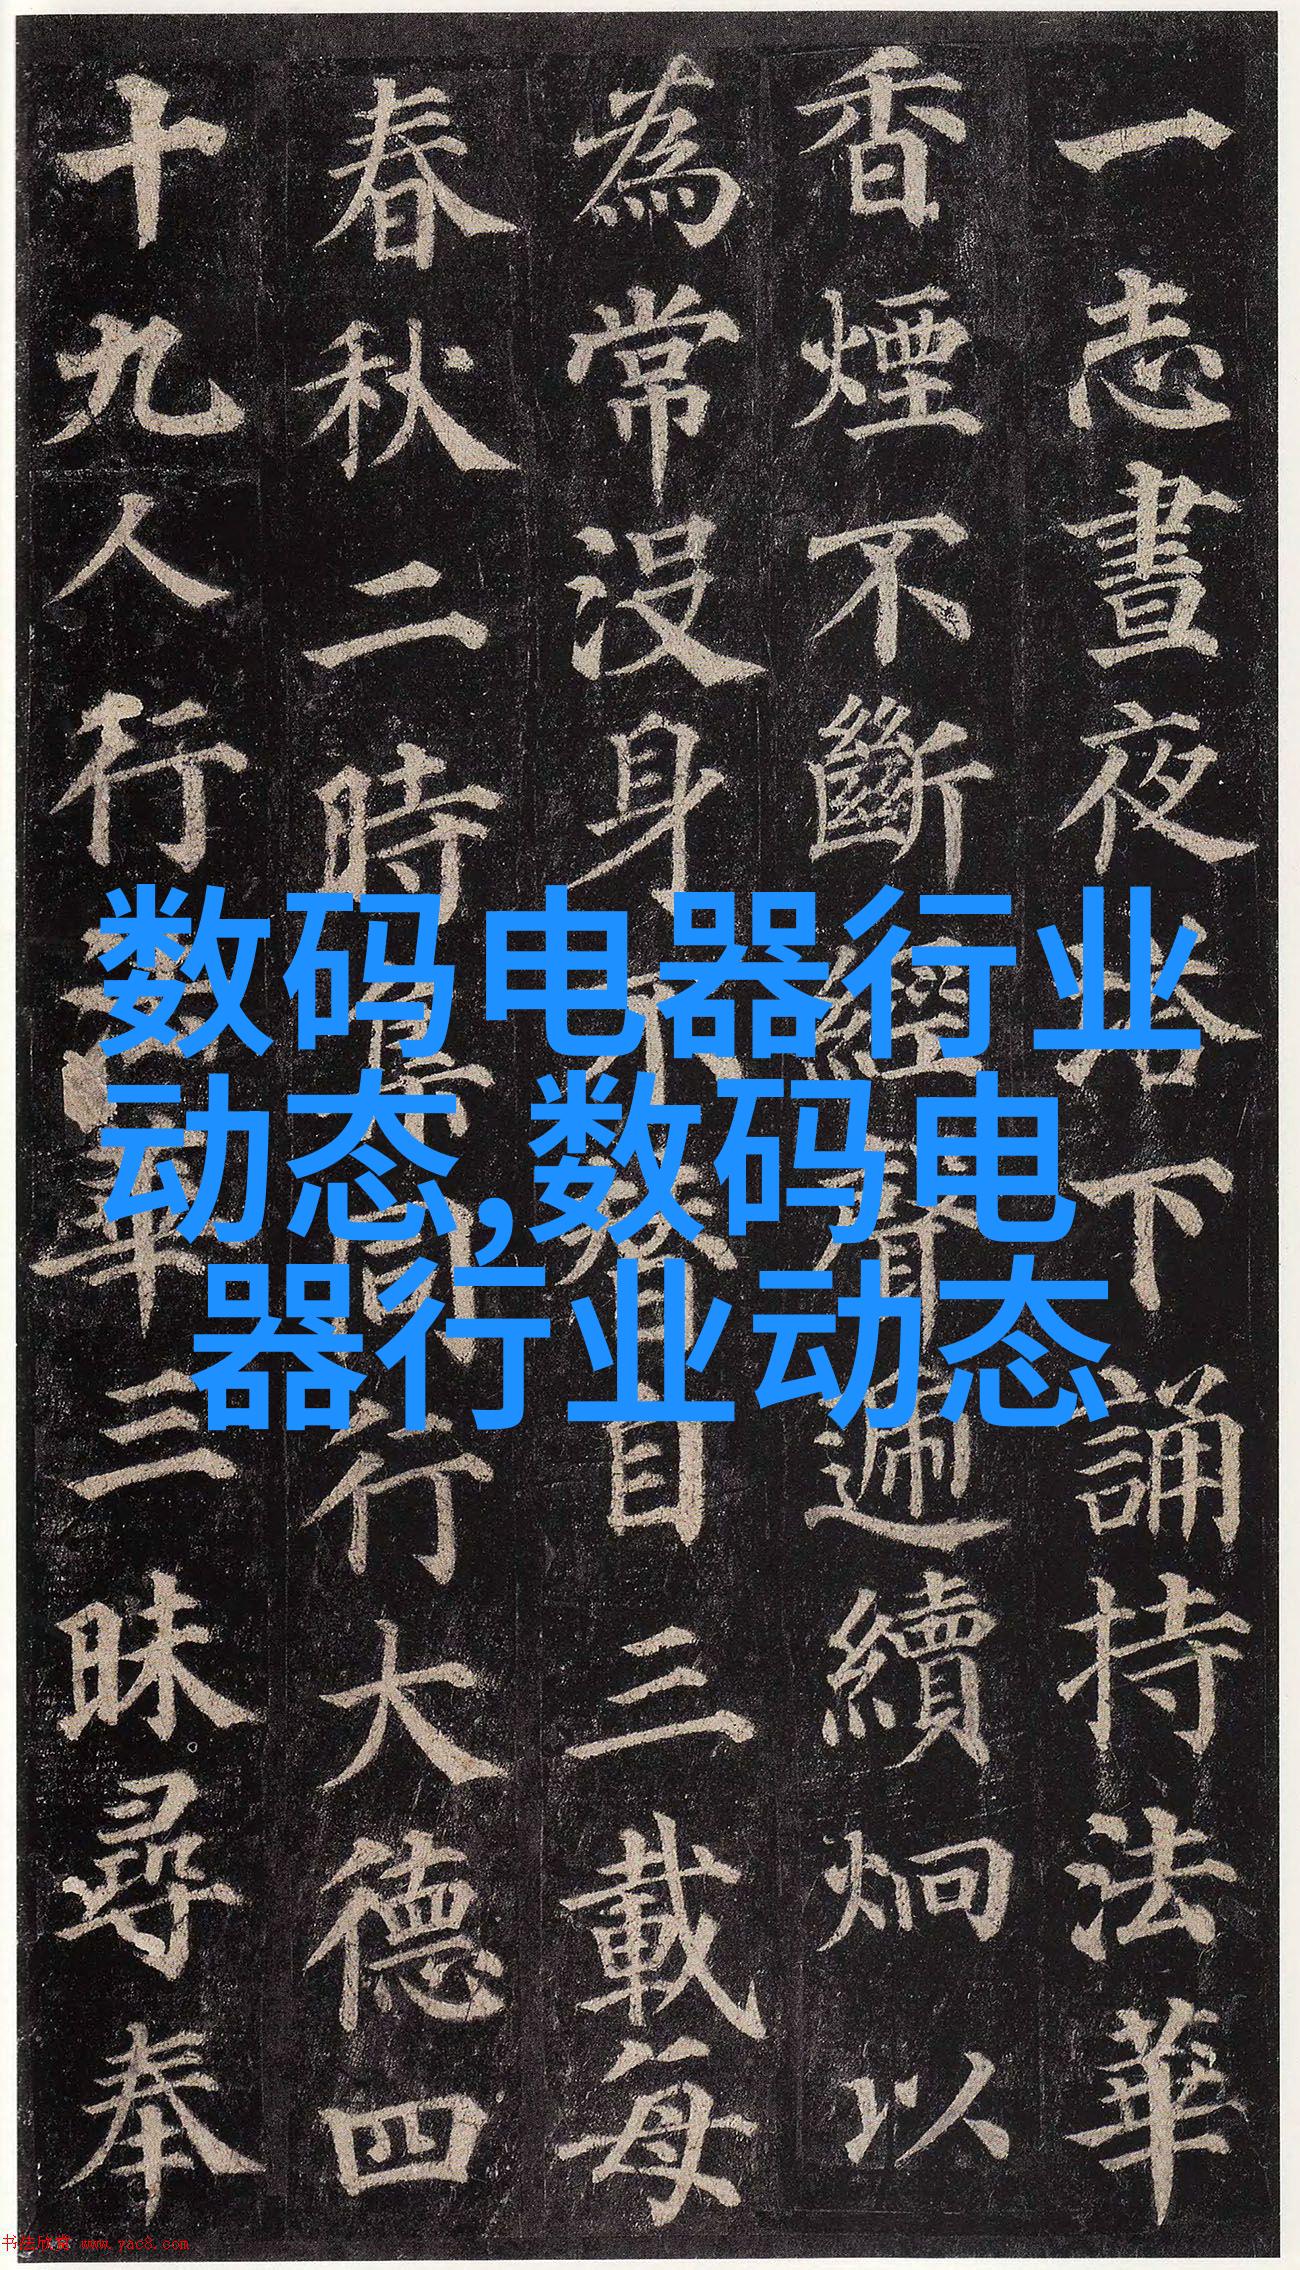 一志晝夜塔下誦持法華
香煙不斷經聲遞續炯以
為常沒身不替自三載每
春秋二時集同行大德四
十九人行法華三昧尋奉
数码电器行业
动态,数码电
器行业动态
书法欣赏 www.yac8.com